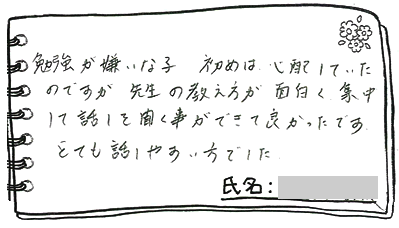 勉強が嫌いな子 初めは、心配していた
のですが 先生の教え方が 面白く 集中
して 話しを 聞く事ができて 良かったです。
とても 話しやすい方でした
氏名: